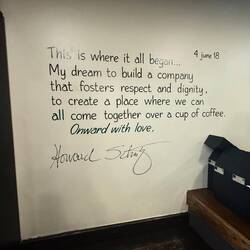 This is where it all began... 4 june 18
My dream to build a company
that fosters respect and dignity,
to create a place where we can
all come together over a cup of coffee.
Onward with love.
Howard Schultz